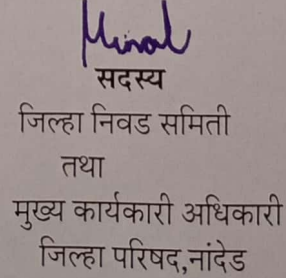 सदस्य
जिल्हा निवड समिती
तथा
मुख्य कार्यकारी अधिकारी
जिल्हा परिषद,नांदेड